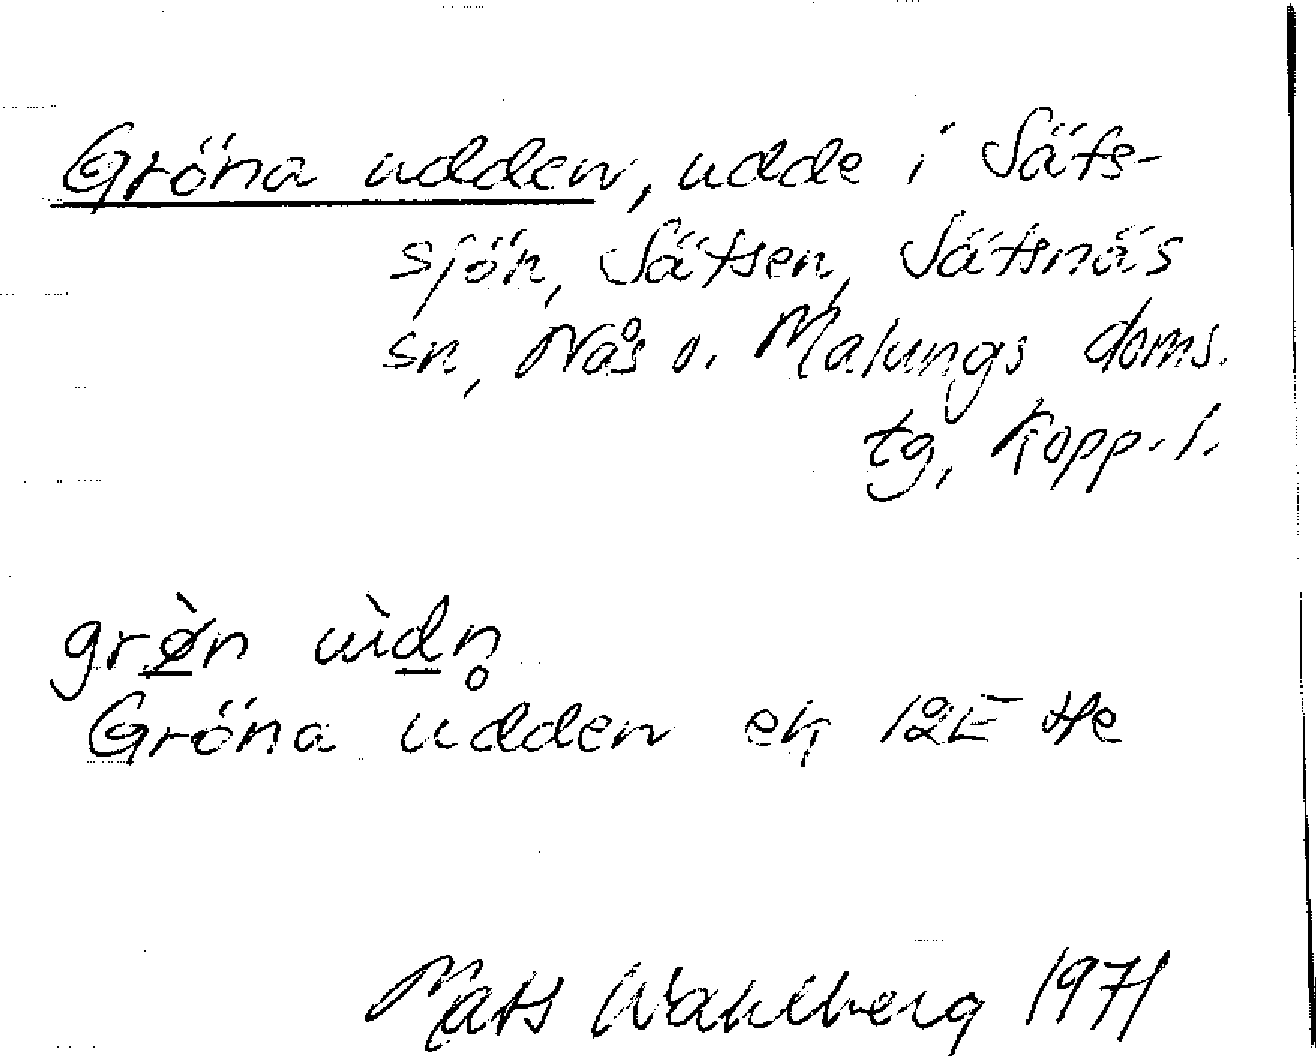 Gröna udden, udde i Säfs-
sjön, Säfsen, Säfsnäs
sn, Nås o. Malungs doms.
tg, Kopp. l.
grø̀n ùdn̥
Gröna udden ek 12E 4e
Mats Wahlberg 1971